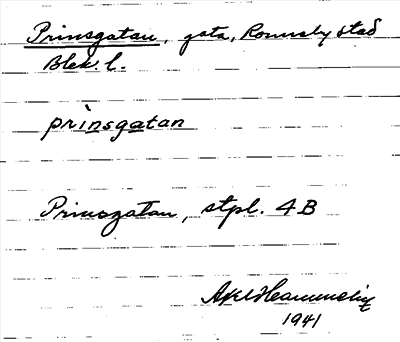 Prinsgatan, gata, Ronneby stad
Blek. l.
prìnsgatan
Prinsgatan, stpl. 4B
1941